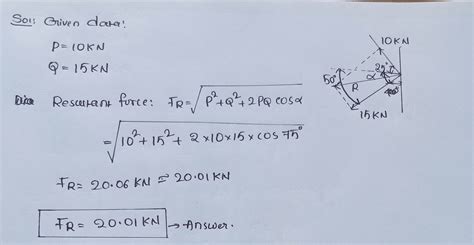 Sol: Given data:
P = 10KN
Q = 15KN
Resultant force: FR = √P²+Q²+2PQ cosα
= √10²+15²+2×10×15×cos 75°
FR = 20.06 KN ≅ 20.01 KN
FR = 20.01KN → Answer.
10KN
25°
50°
α
R
15KN